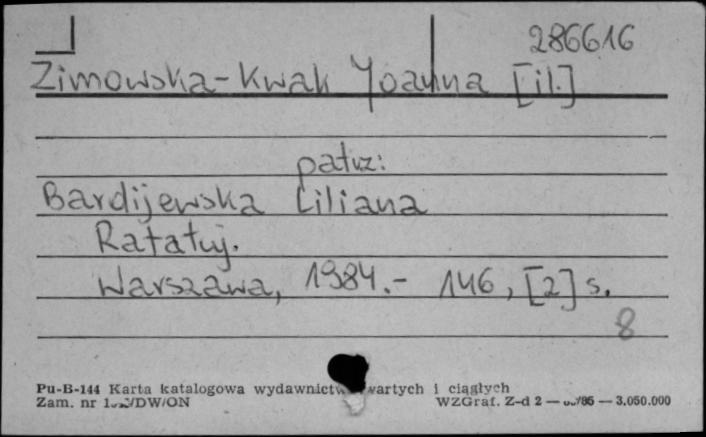 286616
Zimowska-Kwak Joanna [il.]
patrz:
Bardijewska Liliana
Ratatuj.
Warszawa, 1984.- 146, [2] s.
8
Pu-B-144 Karta katalogowa wydawnictw zwartych i ciągłych
Zam. nr /DW/ON WZGraf. Z-d 2 — /85 — 3.050.000